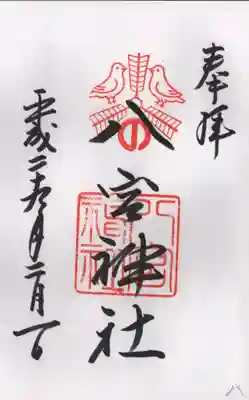 奉拝
八宮神社
八宮神社
平成二年二月一日